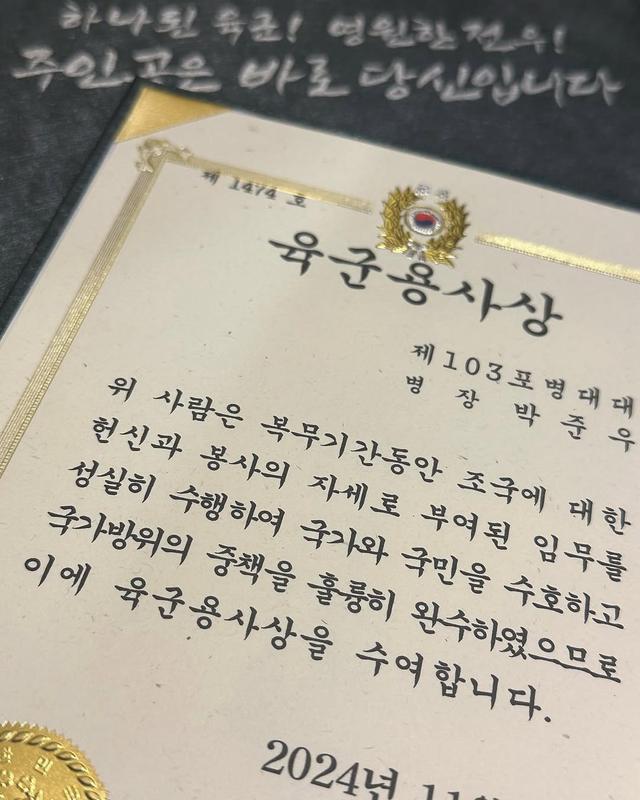 하나된 육군! 영원한 전우!
주인공은 바로 당신입니다
제 1474 호
육군용사상
제103포병대대
병 장 박 준 우
위 사람은 복무기간동안 조국에 대한
헌신과 봉사의 자세로 부여된 임무를
성실히 수행하여 국가와 국민을 수호하고
국가방위의 중책을 훌륭히 완수하였으므로
이에 육군용사상을 수여합니다.
2024년 11월